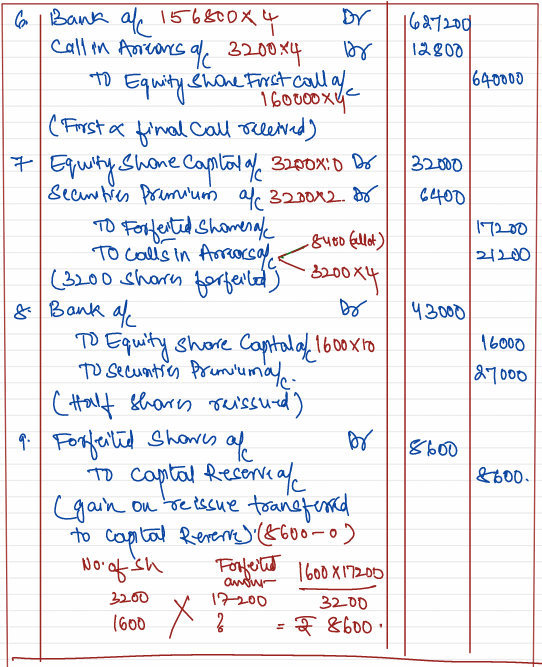 6. Bank a/c 156800×4 Dr 627200
Call in Arrears a/c 3200×4 Dr 12800
TO Equity Share First call a/c 640000
160000×4
(First & final Call received)
7 Equity Share Capital a/c 3200×10 Dr 32000
Securities Premium a/c 3200×2. Dr 6400
TO Forfeited Shares a/c 17200
TO Calls In Arrears a/c 8400 (allot) 21200
3200×4
(3200 shares forfeited)
8. Bank a/c Dr 43000
TO Equity Share Capital a/c 1600×10 16000
TO Securities Premium a/c. 27000
(Half shares reissued)
9. Forfeited Shares a/c Dr 8600
TO Capital Reserve a/c 8600.
(gain on reissue transferred
to capital Reserve). (8600-0)
No. of Sh Forfeited amount 1600×17200
3200 17200 3200
1600 ? = ₹ 8600.